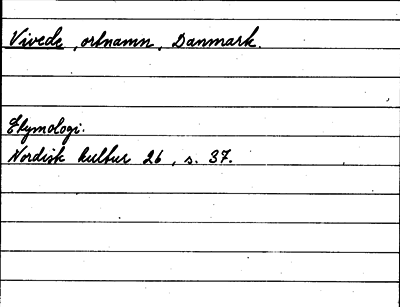 Vivede, ortnamn, Danmark.
Etymologi.
Nordisk kultur 26, s. 37.